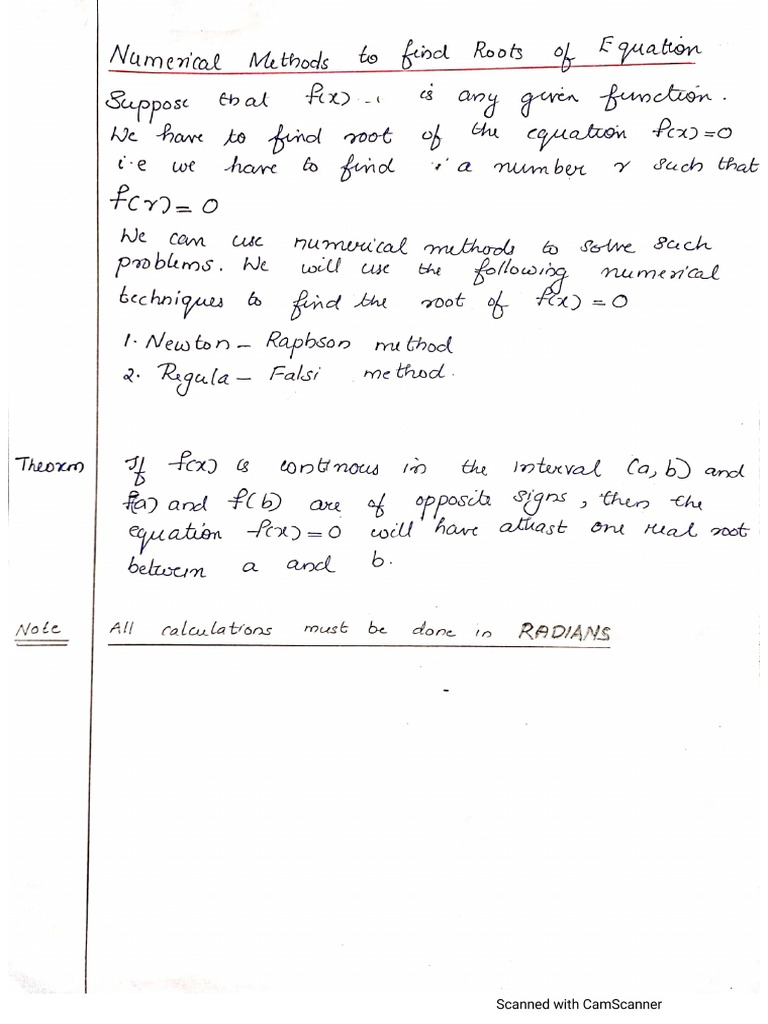 Numerical Methods to find Roots of Equation
Suppose that f(x) is any given function.
We have to find root of the equation f(x)=0
i.e we have to find a number r such that
f(r)=0
We can use numerical methods to solve such
problems. We will use the following numerical
techniques to find the root of f(x)=0
1. Newton – Raphson method
2. Regula – Falsi method.
Theorem If f(x) is continous in the interval (a,b) and
f(a) and f(b) are of opposite signs, then the
equation f(x)=0 will have atleast one real root
between a and b.
Note All calculations must be done in RADIANS
Scanned with CamScanner